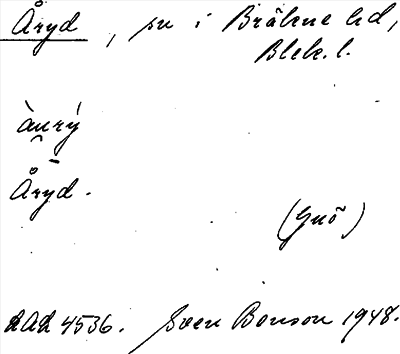 Åryd, sn i Bräkne hd,
Blek. l.
àu̯rý
Åryd.
(Gnö)
LAL 4536. Sven Benson 1948.